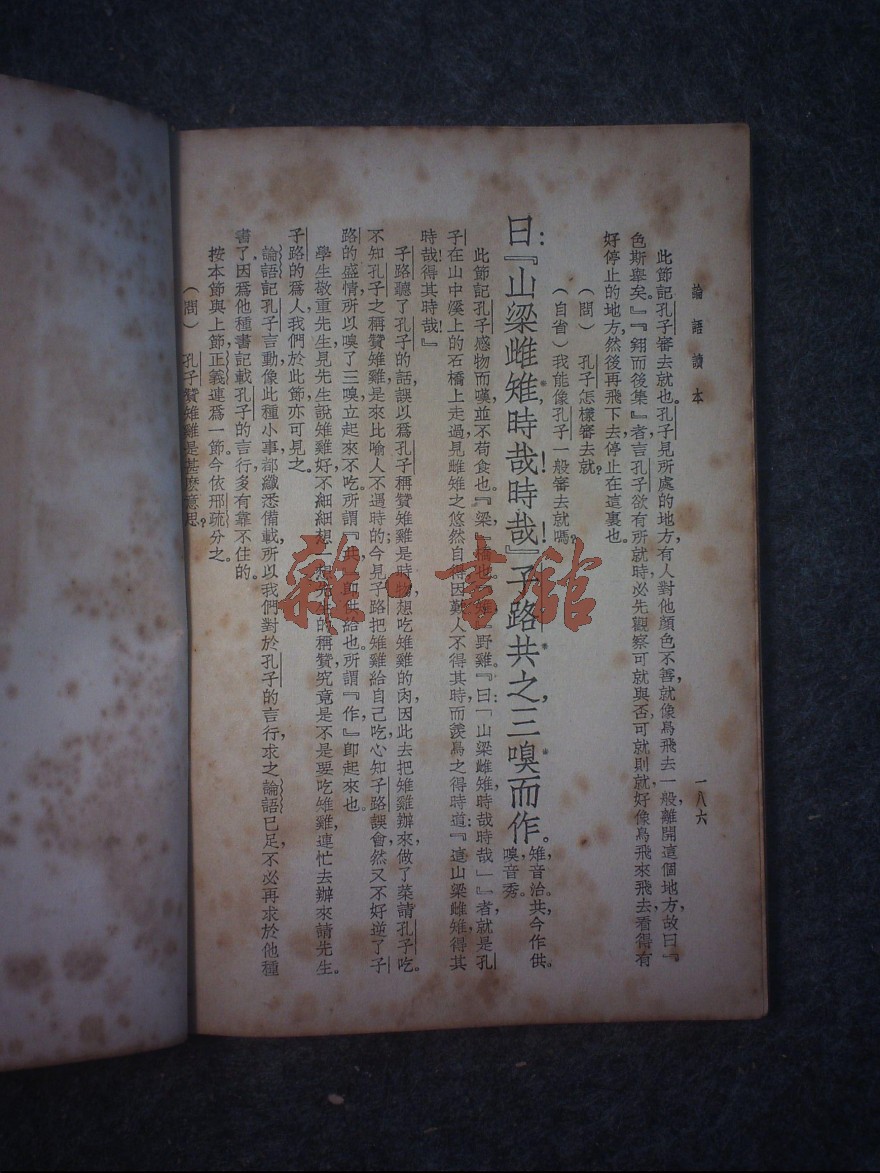 論語讀本
一八六
此節記孔子審去就也。孔子見所處的地方，有人對他顏色不善，就像鳥飛去一般，離開這個地方，故曰『
色斯舉矣。』『翔而後集』者，言孔子欲有所就時，必先觀察可就與否，可就則就，好像鳥飛來飛去，看得有
好停止的地方，然後再飛下去，停止在這裏也。
（問）　孔子怎樣審去就？
（自省）我能像孔子一般審去就嗎？
曰：『山梁雌雉，時哉！時哉！』子路共之，三嗅而作。雉，音治。共，今作供。嗅，音秀。
此節記孔子感物而嘆，並不苟食也。『梁』橋也。野雞。『曰：「山梁雌雉，時哉時哉」』者，就是孔
子在山中溪上的石橋上走過，見雌雉之悠然自得，因歎人不得其時，而羨鳥之得時，道：『這山梁雌雉，得其
時哉！得其時哉！』
子路聽了孔子的話，誤以爲孔子稱贊雉雞是時物，想吃雉雞的肉，因此去把雉雞辦來，做了菜，請孔子吃。
不知孔子之稱贊雉雞，是來比喻人不遇時的；今見子路把雉雞給自己吃，心知子路誤會，然又不好逆了子
路的盛情，所以嗅了三嗅，立起來不吃。所謂『共』，卽供給也。所謂『作』，卽起來也。
學生敬重先生，見先生說雉雞好，不細細想一想先生的稱贊，究竟是不是要吃雉雞，連忙去辦來請先生。
子路的爲人，我們於此節亦可見之。
論語記孔子言動，像此種小事，都纖悉備載，所以我們對於孔子的言行，求之論語已足，不必再求於他種
書了。因爲他種書記載孔子的言行，多有靠不住的。
按本節與上節，正義連爲一節，今依邢疏分之。
（問）　孔子贊雉雞是甚麽意思？
雜·書館